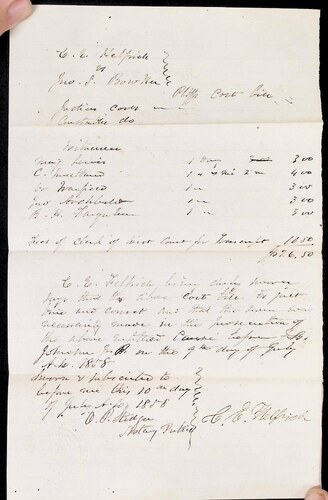 C. E. Helfrich
vs
Jno. S. Bowker
Pltffs Cost Bill
Justice Costs
Constables do
Witnesses
Lewis 1 Day 3 00
C. 1 " 4 00
W 1 " 3 00
Jno Archbald 1 " 3 00
B. H. 1 " 3 00
Fees of Clerk of Dist Court for Transcript 10.50
$26.50
C. E. Helfrich, being duly sworn
says that the above Cost Bill is just
true and correct and that the same was
necessarily made in the prosecution of
the above entitled Cause before
Johnson J.P. on the 9th day of July
A.D. 1858
Sworn & subscribed to
before me this 10th day
of July A.D. 1858
C. E. Helfrich
Notary Public